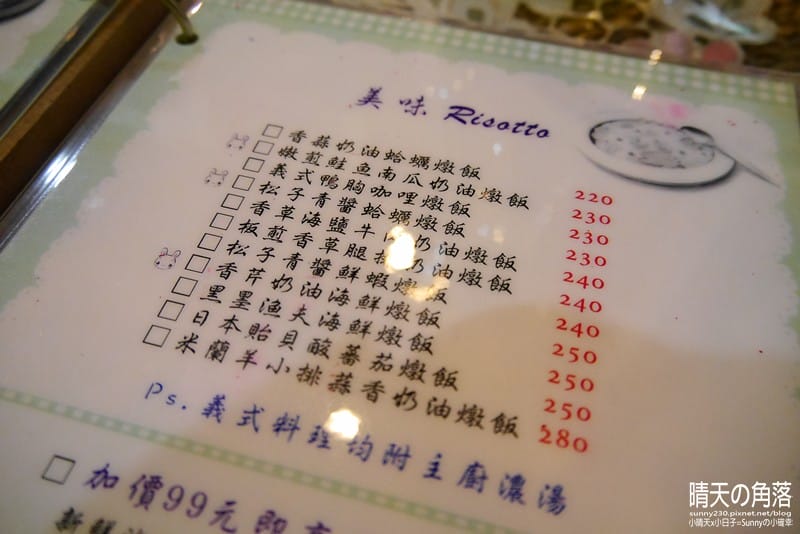 美味 Risotto
□ 香蒜奶油蛤蠣燉飯 220
□ 嫩煎鮭魚南瓜奶油燉飯 230
□ 義式鴨胸咖哩燉飯 230
□ 松子青醬蛤蠣燉飯 230
□ 香草海鹽牛 奶油燉飯 240
□ 板煎香草腿 奶油燉飯 240
□ 松子青醬鮮蝦燉飯 240
□ 香芹奶油海鮮燉飯 250
□ 黑墨漁夫海鮮燉飯 250
□ 日本貽貝酸蕃茄燉飯 250
□ 米蘭羊小排蒜香奶油燉飯 280
Ps. 義式料理均附主廚濃湯
□ 加價99元即享
新鮮
晴天の角落
sunny230.pixnet.net/blog
小晴天x小日子=Sunnyの小確幸